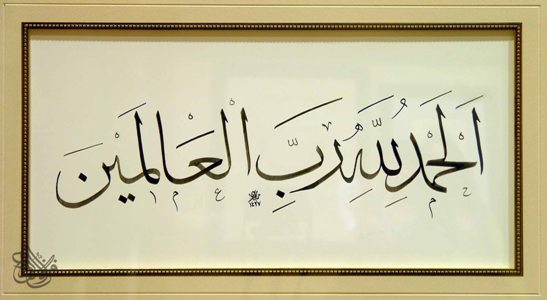 اَلْحَمْدُ لِلّٰهِ رَبِّ الْعَالَمِيْنَ
١٤٣٧